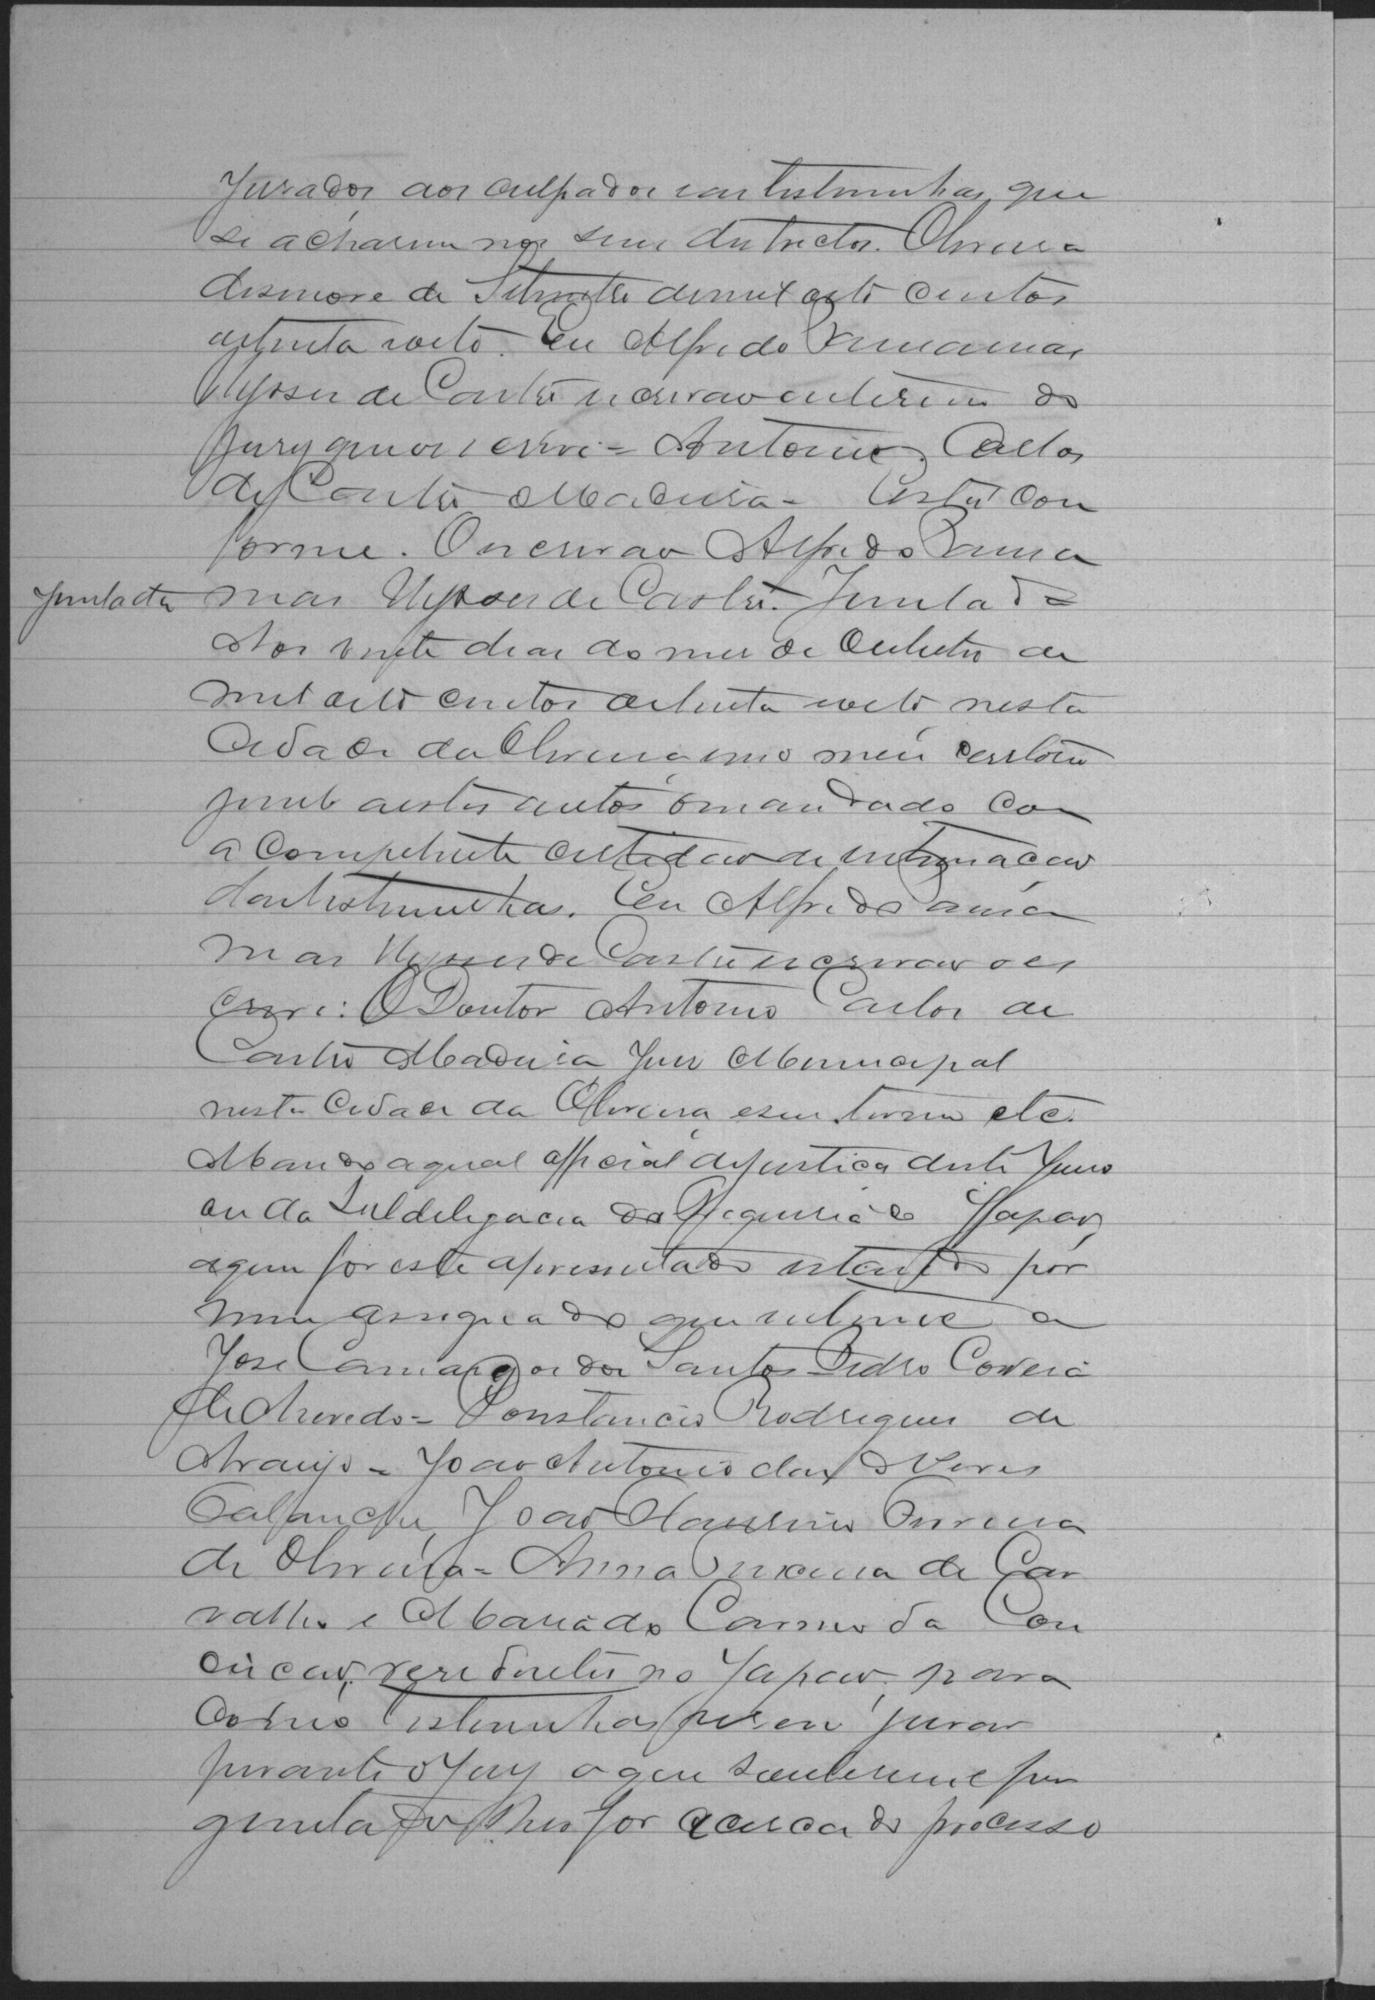 Jurados aos culpados e as testemunhas, que
se acharem nos seus districtos. Oliveira
desenove de Setembro de mil oito centos
oitenta e oito. Eu Alfredo Pana mas
Ulysses de Castro escrivão interino do
Jury que o escrevi = Antonio Carlos
de Castro Madeira - Está con
forme. O escrivão Alfredo
mas Ulysses de Castro. Juntada
Juntada
Aos vinte dias do mes de Outubro de
mil oito centos oitenta e oito nesta
Cidade da Oliveira em o meu cartorio
junto a estes autos o mandado com
a competente certidão de intimação
das testemunhas. Eu Alfredo
mas Ulysses de Castro escrivão o es
crevi: O Doutor Antonio Carlos de
Castro Madeira Juiz Municipal
nesta Cidade da Oliveira e seu termo etc.
Mando a qual official de justiça deste Juizo
ou da Subdelegacia da Freguesia do Japão,
a quem for este apresentado estando por
mim assignado que intime a
José Camargos dos Santos Pedro Correia
de Asevedo - Constancio Rodrigues de
Araujo - João Antonio das Neves
João Ferreira
de Oliveira - Anna de Car
valho e Maria do Carmo da Con
ceicão, residentes no Japão, para
como testemunhas jurar
perante o Jury o que souberem e per
guntado lhes for acerca do processo